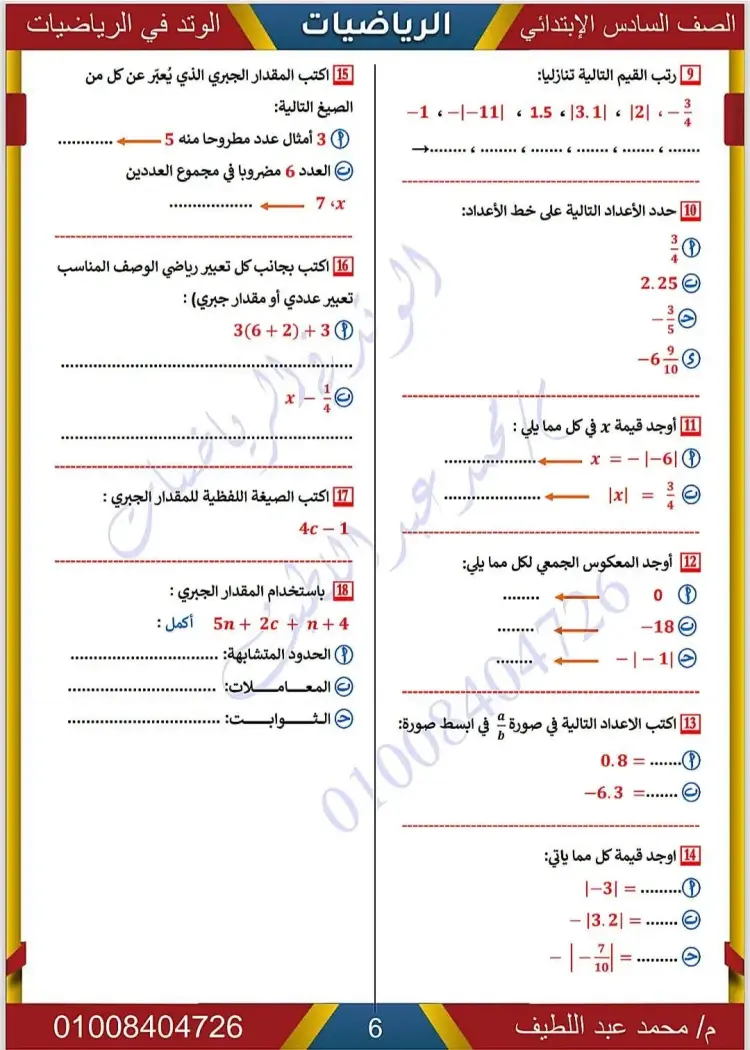 الصف السادس الإبتدائي
الرياضيات
الوتد في الرياضيات
9 رتب القيم التالية تنازليا:
−3/4 ، |2| ، |3.1| ، 1.5 ، −|−11| ، −1
....... ، ...... ، ....... ، ....... ، ........ ، ........→
10 حدد الأعداد التالية على خط الأعداد:
أ 3/4
ب 2.25
جـ −3/5
د −6 9/10
11 أوجد قيمة x في كل مما يلي :
أ x = −|−6| ← ....................
ب |x| = 3/4 ← .....................
12 أوجد المعكوس الجمعي لكل مما يلي:
أ 0 ← ........
ب −18 ← ........
جـ −|−1| ← ........
13 اكتب الاعداد التالية في صورة a/b في ابسط صورة:
أ 0.8 = .......
ب −6.3 = .......
14 اوجد قيمة كل مما ياتي:
أ |−3| = .........
ب −|3.2| = .......
جـ −|−7/10| = .........
15 اكتب المقدار الجبري الذي يُعبّر عن كل من
الصيغ التالية:
أ 3 أمثال عدد مطروحا منه 5 ← ............
ب العدد 6 مضروبا في مجموع العددين
x، 7 ← ..................
16 اكتب بجانب كل تعبير رياضي الوصف المناسب
تعبير عددي أو مقدار جبري) :
أ 3(6 + 2) + 3
................................................................
ب x − 1/4
................................................................
17 اكتب الصيغة اللفظية للمقدار الجبري :
4c − 1
18 باستخدام المقدار الجبري :
5n + 2c + n + 4 أكمل :
أ الحدود المتشابهة: ................................
ب المعامــلات: ................................
جـ الـثــوابــت: .................................
الوتد في الرياضيات
م/ محمد عبد اللطيف
01008404726
م/ محمد عبد اللطيف
6
01008404726